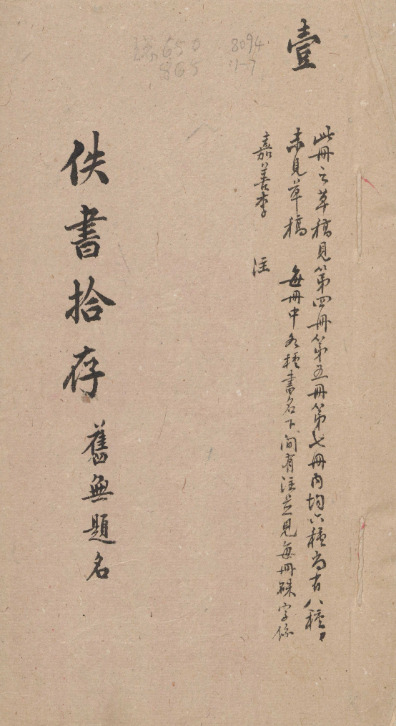 壹
此冊之草稿見第四冊第五冊第七冊內均六種尚有八種
未見草稿 每冊中各種書名下間有注並見每冊硃字係
嘉善李 注
佚書拾存 舊無題名
8094
11-7
650
865